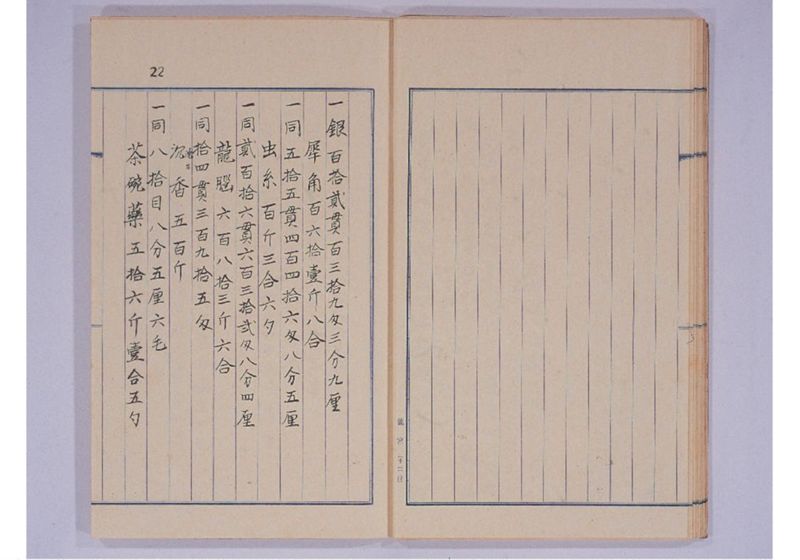 22
一銀百拾貳貫百三拾九匁三分九厘
犀角百六拾壹斤八合
一同五拾五貫四百四拾六匁八分五厘
虫糸百斤三合六夕
一同貳百拾六貫六百三拾弐匁八分四厘
龍腦六百八拾三斤六合
一同拾四貫三百九拾五匁
沉香五百斤
一同八拾目八分五厘六毛
茶碗藥五拾六斤壹合五勺